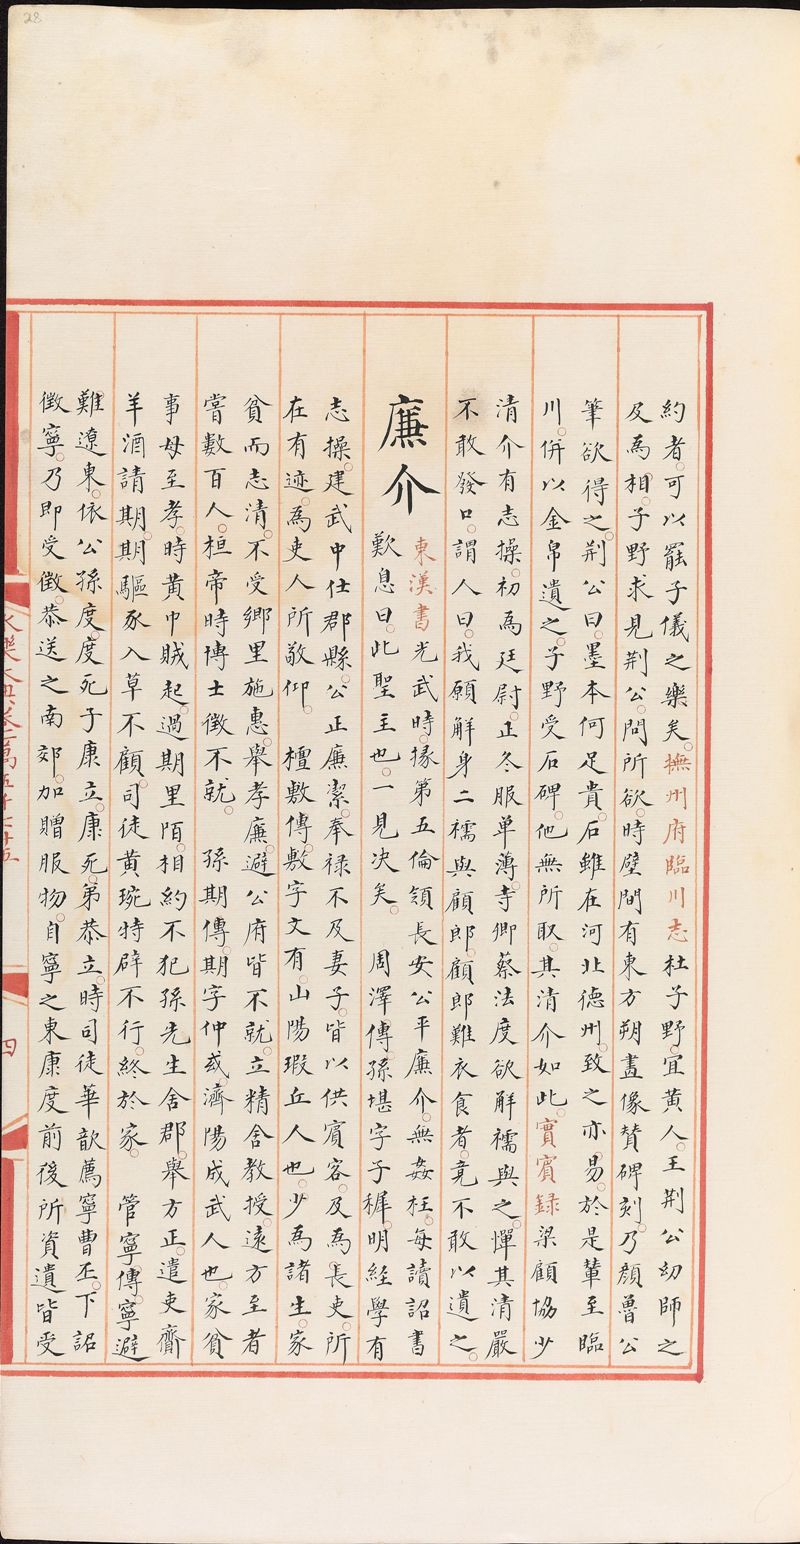 28
約者可以罷子儀之樂矣撫州府臨川志杜子野宜黄人王荆公幼師之
及為相子野求見荆公問所欲時壁間有東方朔畫像賛碑刻乃顔魯公
筆欲得之荆公曰墨本何足貴石雖在河北德州致之亦易於是輦至臨
川併以金帛遺之子野受石碑他無所取其清介如此實賓録梁顧協少
清介有志操初為廷尉正冬服单薄寺卿蔡法度欲解襦與之憚其清嚴
不敢發口謂人曰我願解身二襦與顧郎顧郎難衣食者竟不敢以遺之
廉介
東漢書光武時掾第五倫領長安公平廉介無姦枉每讀詔書
歎息曰此聖主也一見决矣 周澤傳孫堪字子穉明經學有
志操建武中仕郡縣公正廉潔奉禄不及妻子皆以供賓客及為長吏所
在有迹為吏人所敬仰 檀敷傳敷字文有山陽瑕丘人也少為諸生家
貧而志清不受鄉里施惠舉孝廉避公府皆不就立精舍教授遠方至者
嘗數百人桓帝時博士徵不就 孫期傳期字仲彧濟陽成武人也家貧
事母至孝時黄巾賊起過期里陌相約不犯孫先生舍郡舉方正遣吏齎
羊酒請期期驅豕入草不顧司徒黄琬特辟不行終於家 管寧傳寧避
難遼東依公孫度度死子康立康死弟恭立時司徒華歆薦寧曹丕下詔
徴寧乃即受徴恭送之南郊加贈服物自寧之東康度前後所資遺皆受
永樂大典卷二萬五十七十五
四